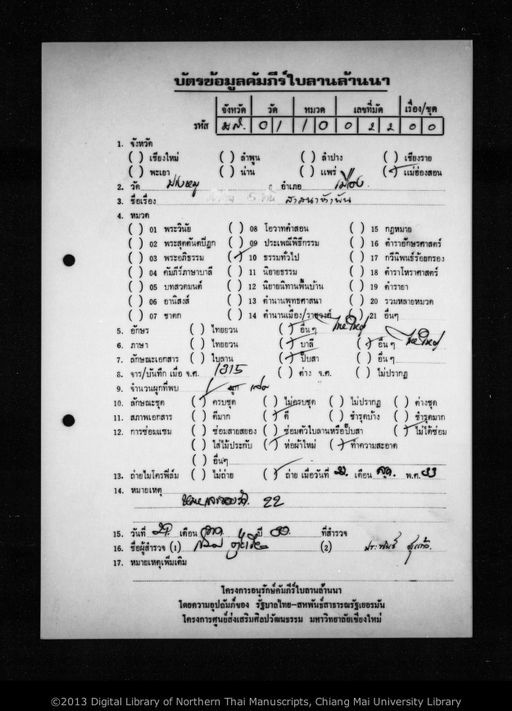 บัตรข้อมูลคัมภีร์ใบลานล้านนา
จังหวัด วัด หมวด เลขที่มัด เรื่อง/ชุด
รหัส มส. 0 1 1 0 0 2 2 0 0
1. จังหวัด
( ) เชียงใหม่ ( ) ลำพูน ( ) ลำปาง ( ) เชียงราย
( ) พะเยา ( ) น่าน ( ) แพร่ (✓) แม่ฮ่องสอน
2. วัด อำเภอ เมือง
3. ชื่อเรื่อง
4. หมวด
( ) 01 พระวินัย ( ) 08 โอวาทคำสอน ( ) 15 กฎหมาย
( ) 02 พระสุตตันตปิฎก ( ) 09 ประเพณีพิธีกรรม ( ) 16 ตำราอักษรศาสตร์
( ) 03 พระอภิธรรม (✓) 10 ธรรมทั่วไป ( ) 17 กวีนิพนธ์ร้อยกรอง
( ) 04 คัมภีร์ภาษาบาลี ( ) 11 นิยายธรรม ( ) 18 ตำราโหราศาสตร์
( ) 05 บทสวดมนต์ ( ) 12 นิยายนิทานพื้นบ้าน ( ) 19 ตำรายา
( ) 06 อานิสงส์ ( ) 13 ตำนานพุทธศาสนา ( ) 20 รวมหลายหมวด
( ) 07 ชาดก ( ) 14 ตำนานเมือง/ราชวงศ์ ( ) 21 อื่นๆ
5. อักษร ( ) ไทยยวน (✓) อื่น ๆ ไทใหญ่
6. ภาษา ( ) ไทยยวน (✓) บาลี (✓) อื่น ๆ ไทใหญ่
7. ลักษณะเอกสาร ( ) ใบลาน (✓) ปั๊บสา ( ) อื่น ๆ
8. จาร/บันทึก เมื่อ จ.ศ. 1315 ( ) ต่าง จ.ศ. ( ) ไม่ปรากฏ
9. จำนวนผูกที่พบ ผูก
10. ลักษณะชุด (✓) ครบชุด ( ) ไม่ครบชุด ( ) ไม่ปรากฏ ( ) ต่างชุด
11. สภาพเอกสาร ( ) ดีมาก (✓) ดี ( ) ชำรุดบ้าง ( ) ชำรุดมาก
12. การซ่อมแซม ( ) ซ่อมสายสยอง ( ) ซ่อมตัวใบลานหรือปั๊บสา (✓) ไม่ได้ซ่อม
( ) ใส่ไม้ประกับ (✓) ห่อผ้าใหม่ (✓) ทำความสะอาด
( ) อื่นๆ
13. ถ่ายไมโครฟิล์ม ( ) ไม่ถ่าย (✓) ถ่าย เมื่อวันที่ เดือน พ.ศ. 33
14. หมายเหตุ
22
15. วันที่ เดือน ปี ที่สำรวจ
16. ชื่อผู้สำรวจ (1) (2)
17. หมายเหตุเพิ่มเติม
โครงการอนุรักษ์คัมภีร์ใบลานล้านนา
โดยความอุปถัมภ์ของ รัฐบาลไทย-สหพันธ์สาธารณรัฐเยอรมัน
โครงการศูนย์ส่งเสริมศิลปวัฒนธรรม มหาวิทยาลัยเชียงใหม่
©2013 Digital Library of Northern Thai Manuscripts, Chiang Mai University Library